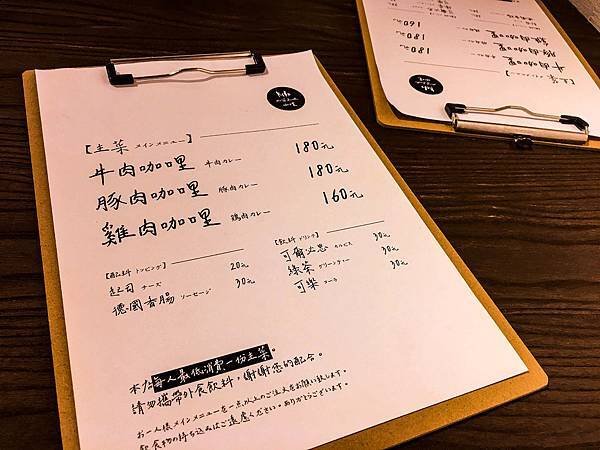 【主菜 メインメニュー】
牛肉咖哩 牛肉カレー 180元
豚肉咖哩 豚肉カレー 180元
雞肉咖哩 鶏肉カレー 160元
【配料 トッピング】
起司 チーズ 20元
德國香腸 ソーセージ 30元
【飲料 ドリンク】
可爾必思 カルピス 30元
綠茶 グリーンティー 30元
可樂 コーラ 30元
本店每人最低消費一份主菜。
請勿攜帶外食飲料，謝謝您的配合。
お一人様メインメニューを一点以上のご注文をお願い致します。
飲食物の持ち込みはご遠慮ください。ありがとうございます。
【主菜 メインメニュー】
牛肉咖哩 180元
豚肉咖哩 180元
雞肉咖哩 160元